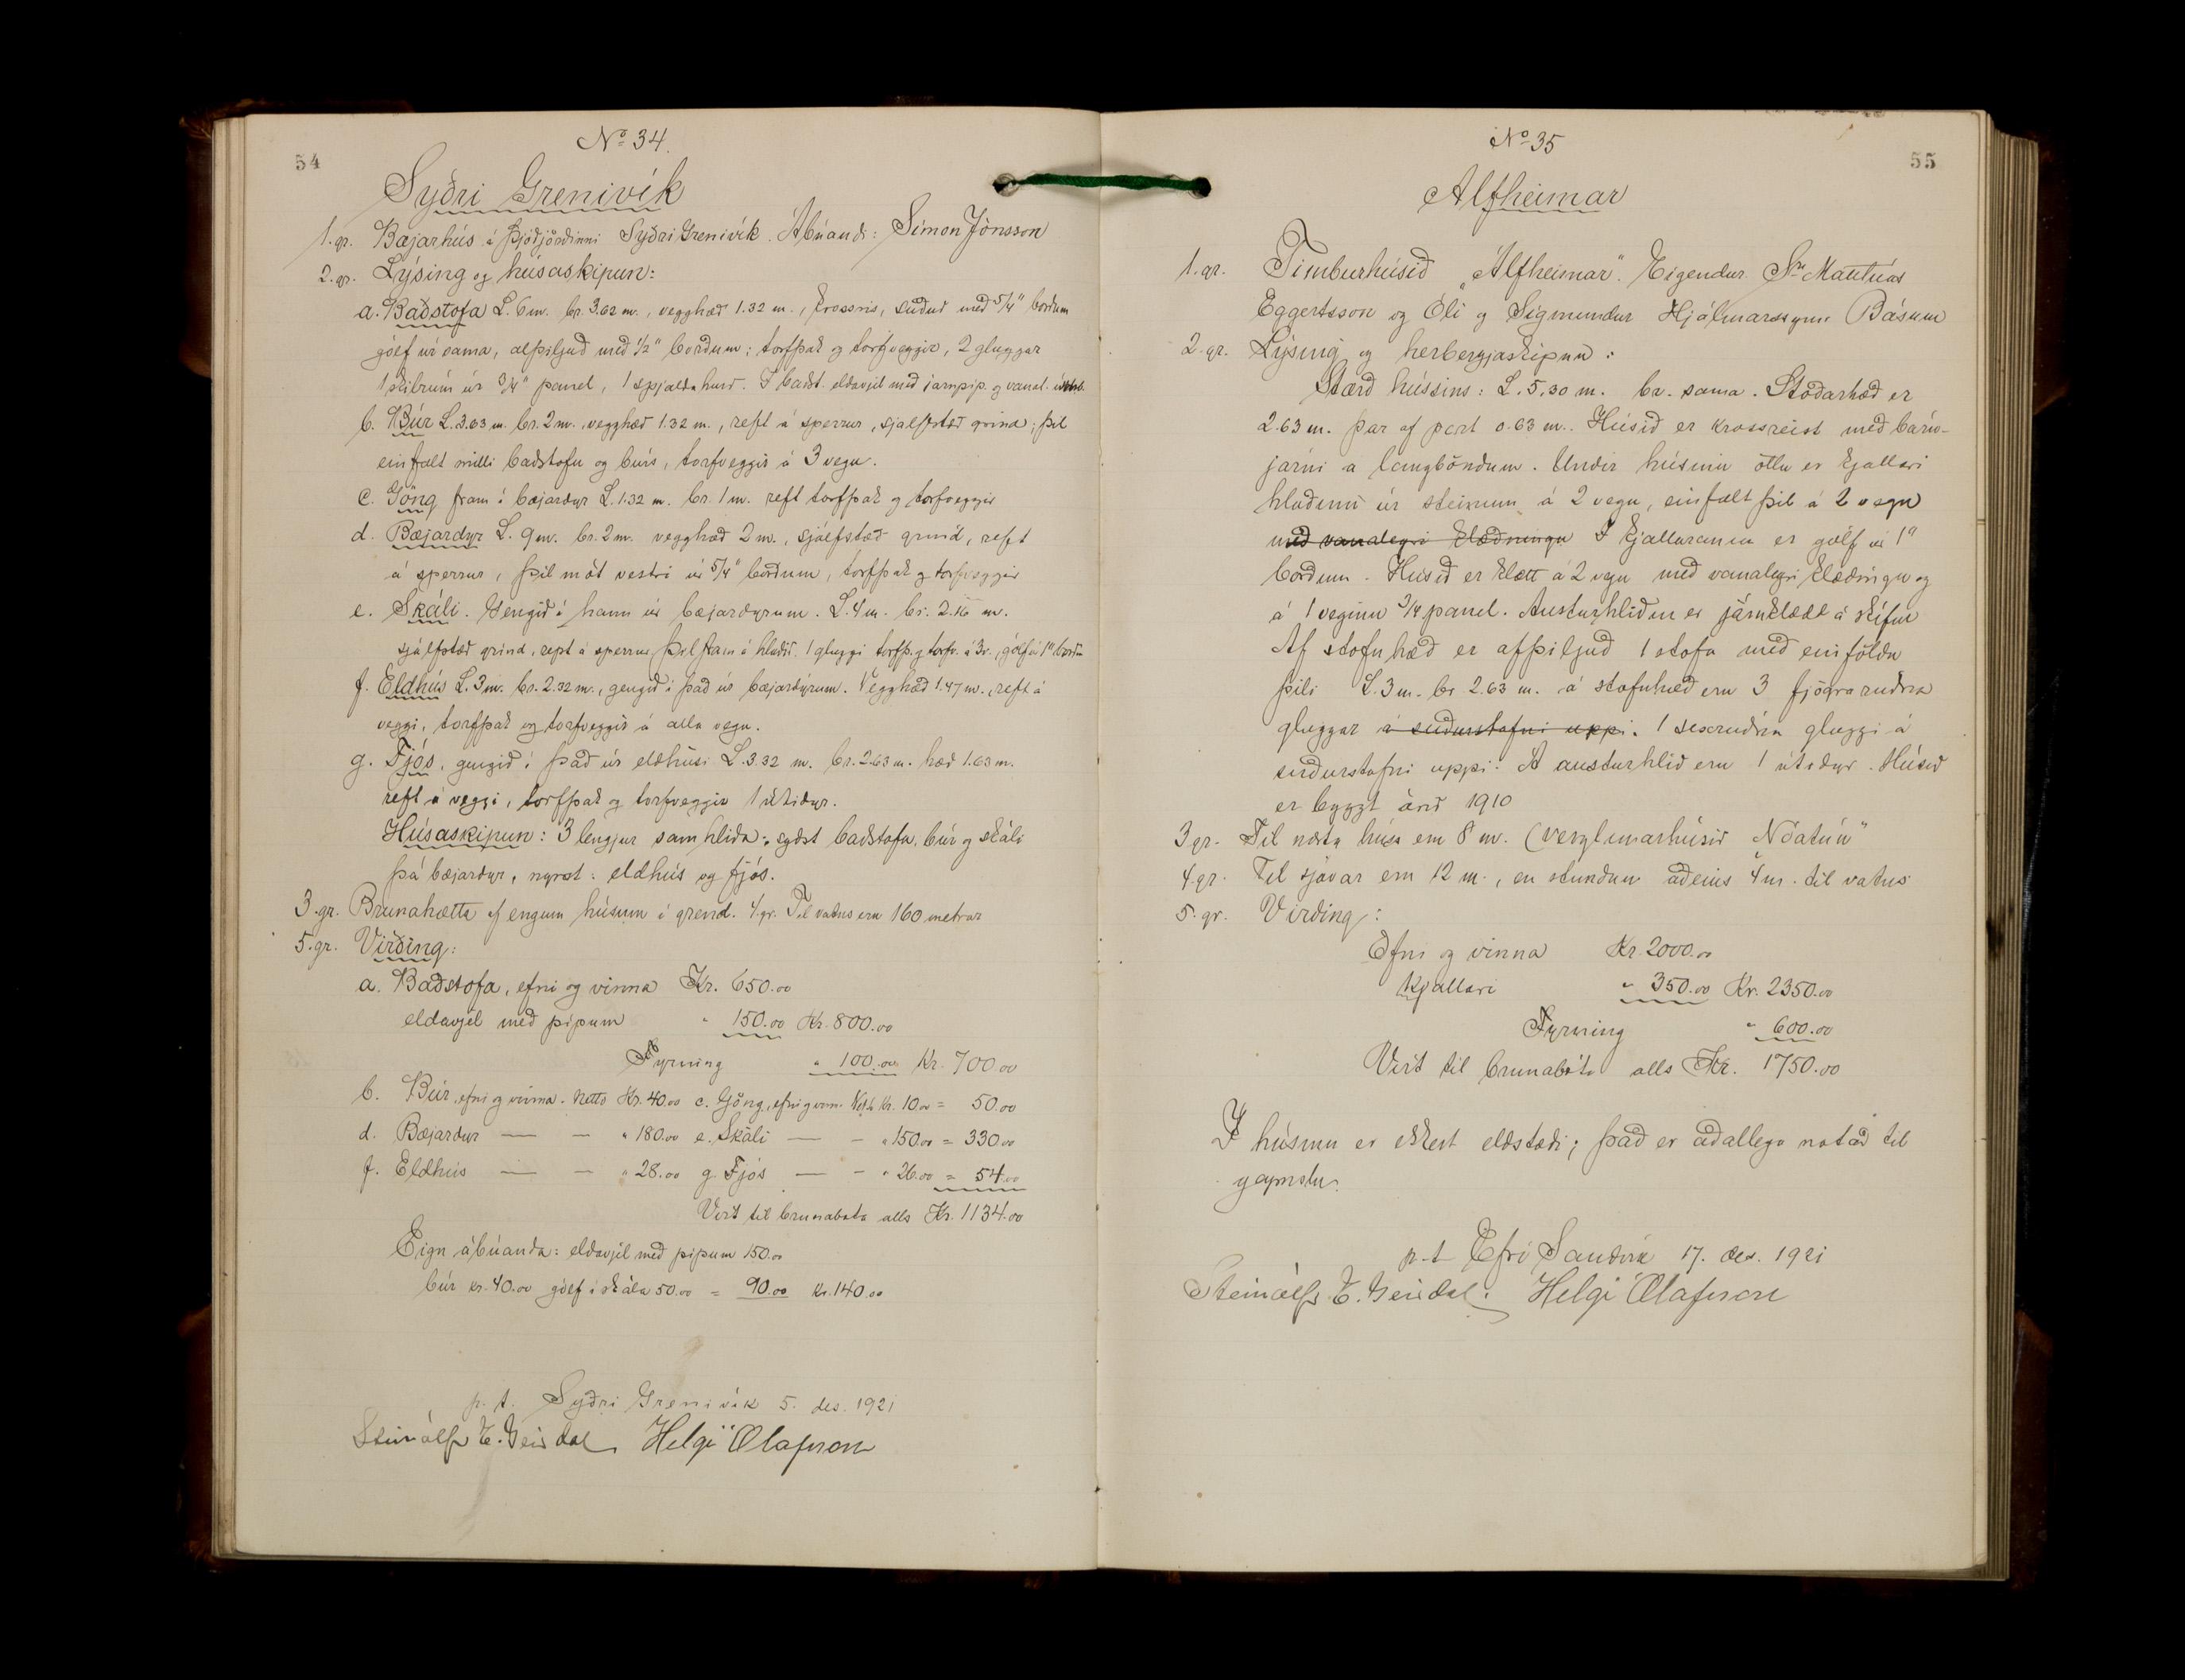 54
No 34.
Syðri Grenivík
1. gr. Bæjarhús á Þjóðjörðinni Syðri Grenivík. Ábúandi: Símon Jónsson
2. gr. Lýsing og húsaskipun:
a. Baðstofa L. 6 m. br. 3.62 m., vegghæð 1.32 m., krossris, súðuð með 5/4" borðum
gólf úr sama, alþiljuð með 1/2" borðum; torfþak og torfveggir, 2 gluggar
1 skilrúm úr 3/4" panel, 1 spjaldahurð. Í baðst. eldavjel með járnpíp. og vanal.
b. Búr L. 3.63 m. br. 2 m. vegghæð 1.32 m., reft á sperrur, sjálfstæð grind; þil
einfalt milli baðstofu og búrs, torfveggir á 3 vegu.
c. Göng fram í bæjardyr L. 1.32 m. br. 1 m. reft torfþak og torfveggir
d. Bæjardyr L. 9 m. br. 2 m. vegghæð 2 m., sjálfstæð grind, reft
á sperrur, þil mót vestri úr 5/4" borðum, torfþak og torfveggir
e. Skáli. Gengið í hann úr bæjardyrum. L. 4 m. br. 2.16 m.
sjálfstæð grind, rept á sperrur þil fram á hlaðið. 1 gluggi torfþ. og torfv. á 3 v., gólf úr 1" borðu
f. Eldhús L. 3 m. br. 2.32 m., gengið í það úr bæjardyrum. Vegghæð 1.47 m., reft á
veggi, torfþak og torfveggir á alla vegu.
g. Fjós, gengið í það úr eldhúsi L. 3.32 m. br. 2.63 m. hæð 1.63 m.
reft á veggi, torfþak og torfveggir 1 útidyr.
Húsaskipun: 3 lengjur samhliða: syðst baðstofa, búr og skáli
þá bæjardyr, nyrst: eldhús og fjós.
3. gr. Brunahætta af engum húsum í grend. 4. gr. Til vatns eru 160 metrar
5. gr. Virðing:
a. Baðstofa, efni og vinna Kr. 650.00
eldavjel með pípum " 150.00 Kr. 800.00
Fyrning " 100.00 Kr. 700.00
b. Búr, efni og vinna. Netto Kr. 40.00 c. Göng, efni og vinn. Netto Kr. 10.00 = 50.00
d. Bæjardyr — — " 180.00 e. Skáli — — " 150.00 = 330.00
f. Eldhús — — " 28.00 g. Fjós — — " 26.00 = 54.00
Virt til brunabóta alls Kr. 1134.00
Eign ábúanda: eldavjel með pípum 150.00
búr kr. 40.00 gólf í skála 50.00 = 90.00 Kr. 140.00
p. t. Syðri Grenivík 5. des. 1921
Steinólfr E. Geirdal Helgi Ólafsson
55
No 35
Alfheimar
1. gr. Timburhúsið "Álfheimar". Eigendur Sr. Matthías
Eggertsson og Óli og Sigmundur Hjálmarssynir Básum
2. gr. Lýsing og herbergjaskipun:
Stærð hússins: L. 5.30 m. br. sama. Stoðarhæð er
2.63 m. þar af port 0.63 m. Húsið er krossreist með báru-
járni á langböndum. Undir húsinu öllu er kjallari
hlaðinn úr steinum á 2 vegu, einfalt þil á 2 vegu
með vanalegri klæðningu Í kjallaranum er gólf úr 1"
borðum. Húsið er klætt á 2 vegu með vanalegri klæðningu og
á 1 veginn 3/4 panel. Austurhliðin er járnklædd á skífur
Af stofuhæð er afþiljuð 1 stofa með einföldu
þili L. 3 m. br. 2.63 m. á stofuhæð eru 3 fjögra rúðna
gluggar á suðurstafni uppi. 1 sexrúðna gluggi á
suðurstafni uppi. Á austurhlið eru 1 útidyr. Húsið
er byggt árið 1910
3 gr. Til næsta húss eru 8 m. (verzlunarhúsið "Nóatún"
4. gr. Til sjávar eru 12 m., en stundum aðeins 4 m. til vatns
5. gr. Virðing:
Efni og vinna Kr. 2000.00
Kjallari " 350.00 Kr. 2350.00
Fyrning " 600.00
Virt til brunabóta alls Kr. 1750.00
Í húsinu er ekkert eldstæði; það er aðallega notað til
geymslu.
p. t. Efri Sandvík 17. des. 1921
Steinólfr E. Geirdal. Helgi Ólafsson